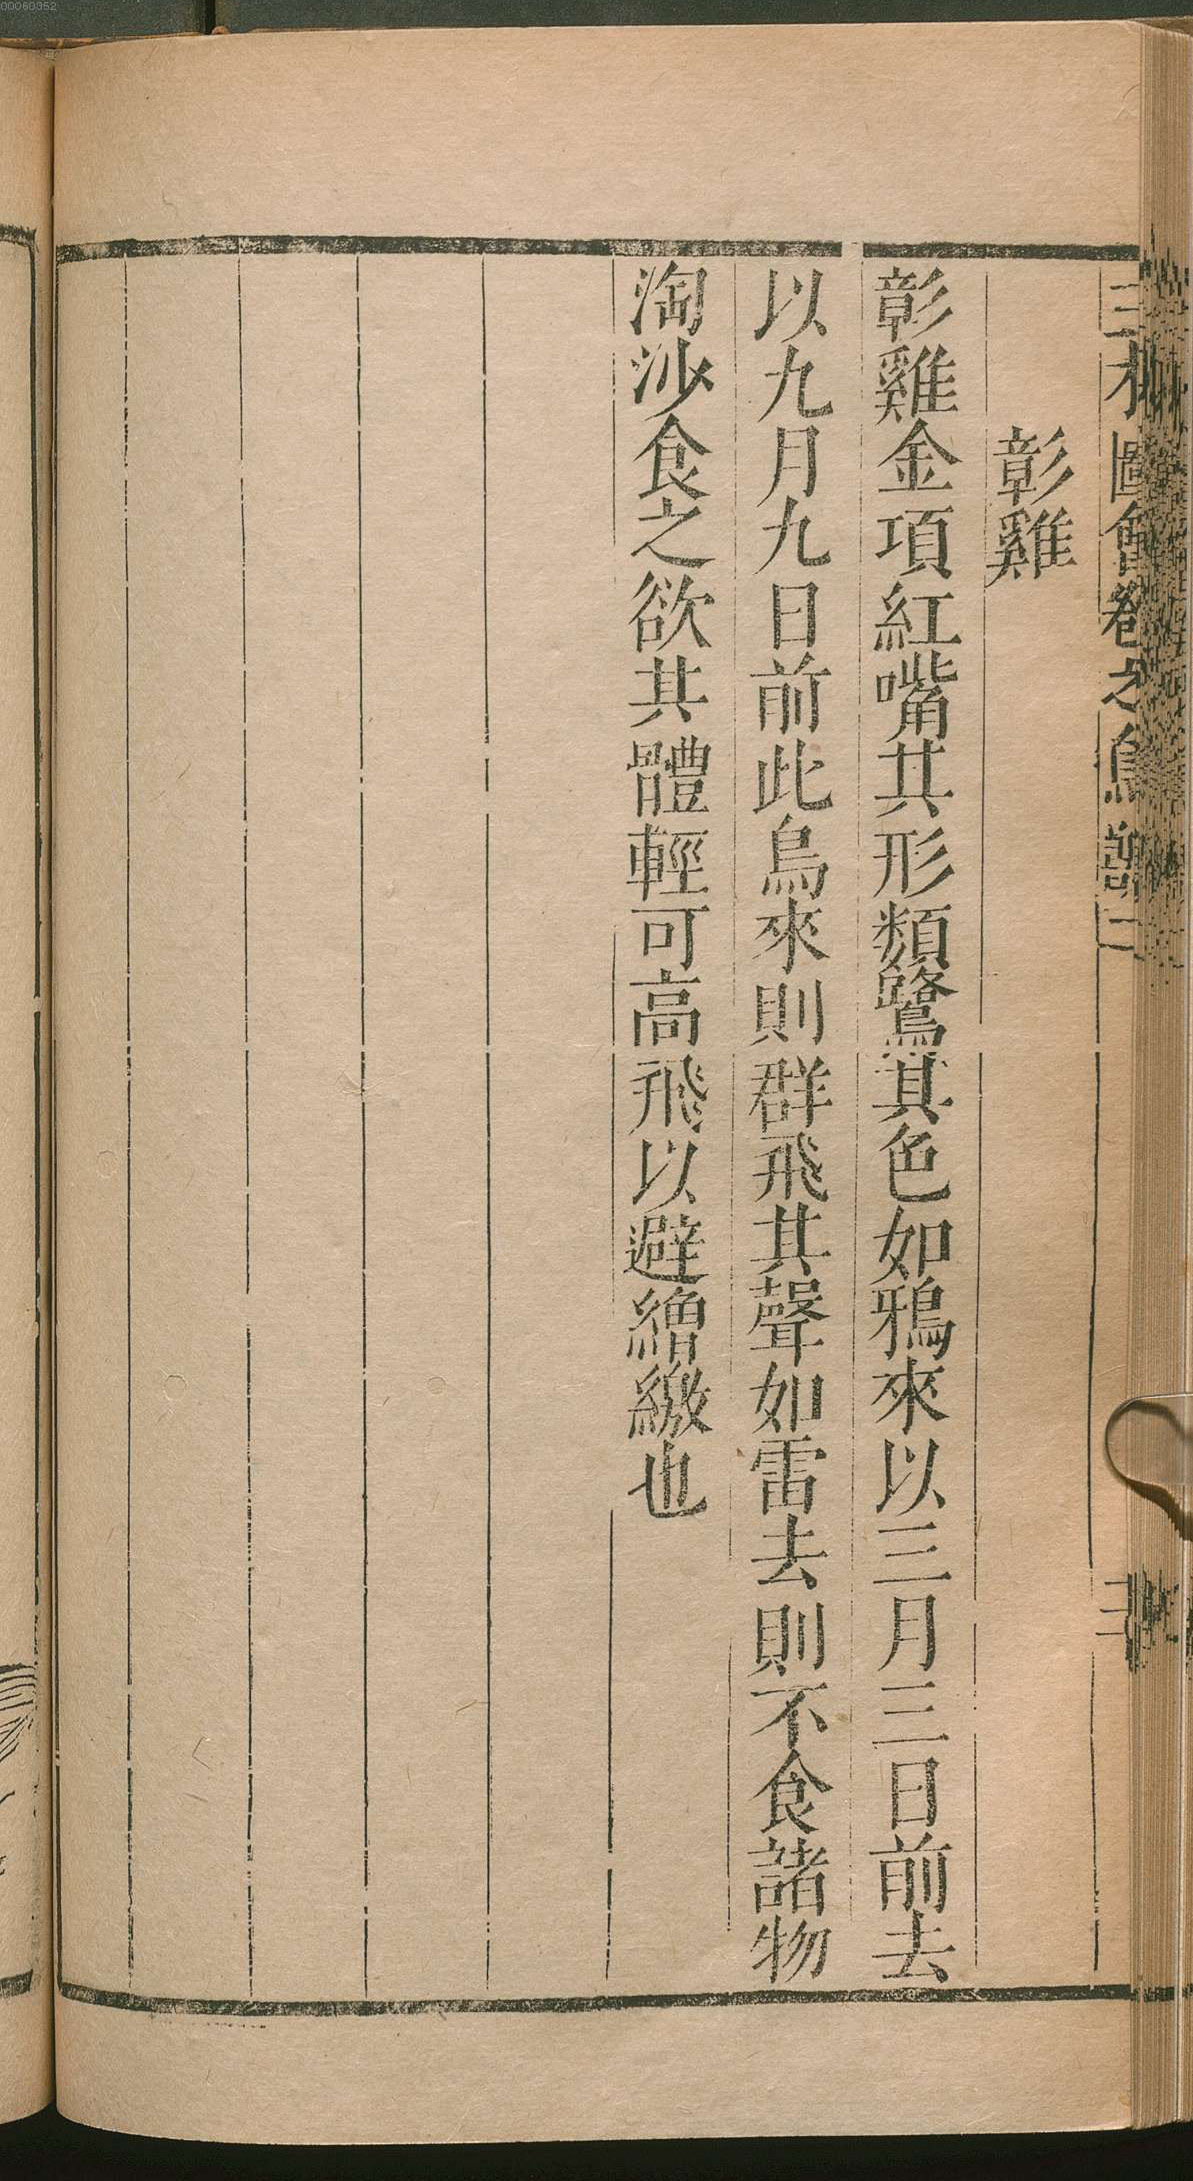 三才圖會卷之鳥獸二
彰雞
彰雞金項紅嘴其形類鷺其色如鴉來以三月三日前去
以九月九日前此鳥來則群飛其聲如雷去則不食諸物
淘沙食之欲其體輕可高飛以避繒繳也
00060352